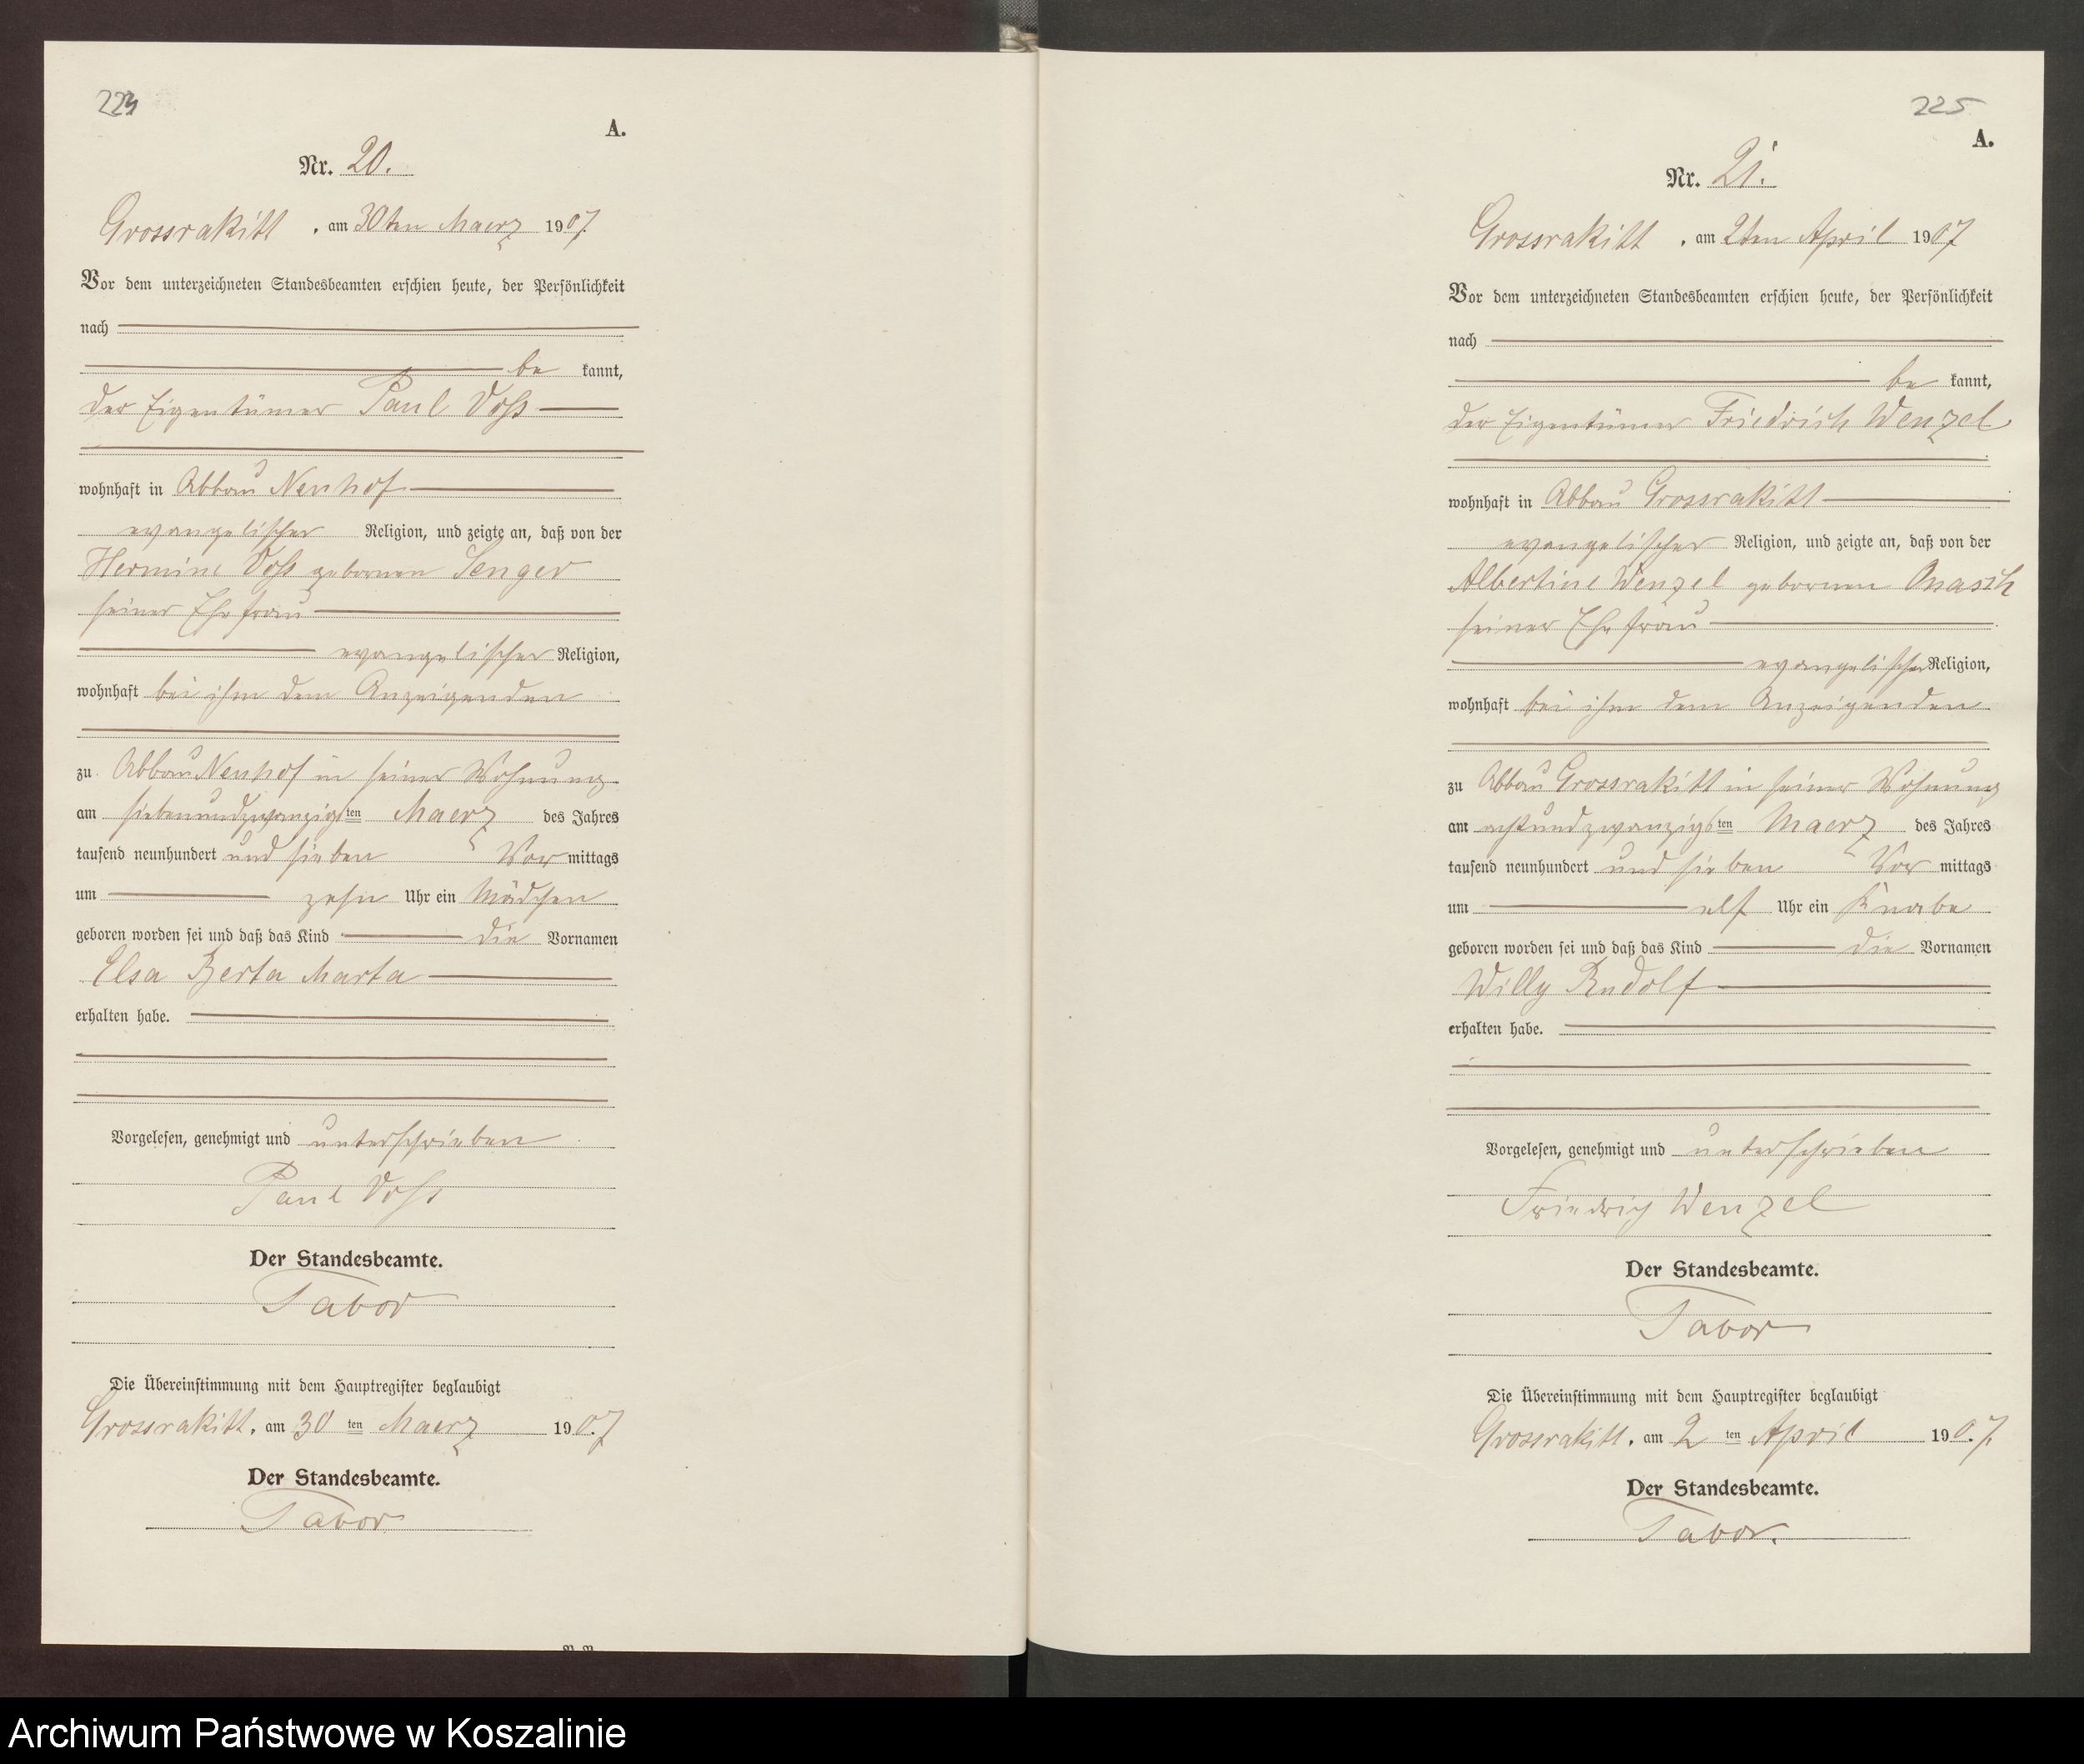 224
A.
Nr. 20.
Grossrakitt, am 30ten Maerz 1907.
Vor dem unterzeichneten Standesbeamten erschien heute, der Persönlichkeit
nach
be kannt,
der Eigentümer Paul Voß
wohnhaft in Abbau Neuhof
evangelischer Religion, und zeigte an, daß von der
Hermine Voß gebornen Senger
seiner Ehefrau
evangelischer Religion,
wohnhaft bei ihm dem Anzeigenden
zu Abbau Neuhof in seiner Wohnung
am siebenundzwanzigsten Maerz des Jahres
tausend neunhundert und sieben Vor mittags
um zehn Uhr ein Mädchen
geboren worden sei und daß das Kind die Vornamen
Elsa Berta Marta
erhalten habe.
Vorgelesen, genehmigt und unterschrieben
Paul Voß
Der Standesbeamte.
Tabor
Die Übereinstimmung mit dem Hauptregister beglaubigt
Grossrakitt, am 30 ten Maerz 1907
Der Standesbeamte.
Tabor
225
A.
Nr. 21.
Grossrakitt, am 2ten April 1907
Vor dem unterzeichneten Standesbeamten erschien heute, der Persönlichkeit
nach
be kannt,
der Eigentümer Friedrich Wenzel
wohnhaft in Abbau Grossrakitt
evangelischer Religion, und zeigte an, daß von der
Albertine Wenzel gebornen Onasch
seiner Ehefrau
evangelischer Religion,
wohnhaft bei ihm dem Anzeigenden
zu Abbau Grossrakitt in seiner Wohnung
am achtundzwanzigsten Maerz des Jahres
tausend neunhundert und sieben Vor mittags
um elf Uhr ein Knabe
geboren worden sei und daß das Kind die Vornamen
Willy Rudolf
erhalten habe.
Vorgelesen, genehmigt und unterschrieben
Friedrich Wenzel
Der Standesbeamte.
Tabor
Die Übereinstimmung mit dem Hauptregister beglaubigt
Grossrakitt, am 2 ten April 1907.
Der Standesbeamte.
Tabor.
Archiwum Państwowe w Koszalinie